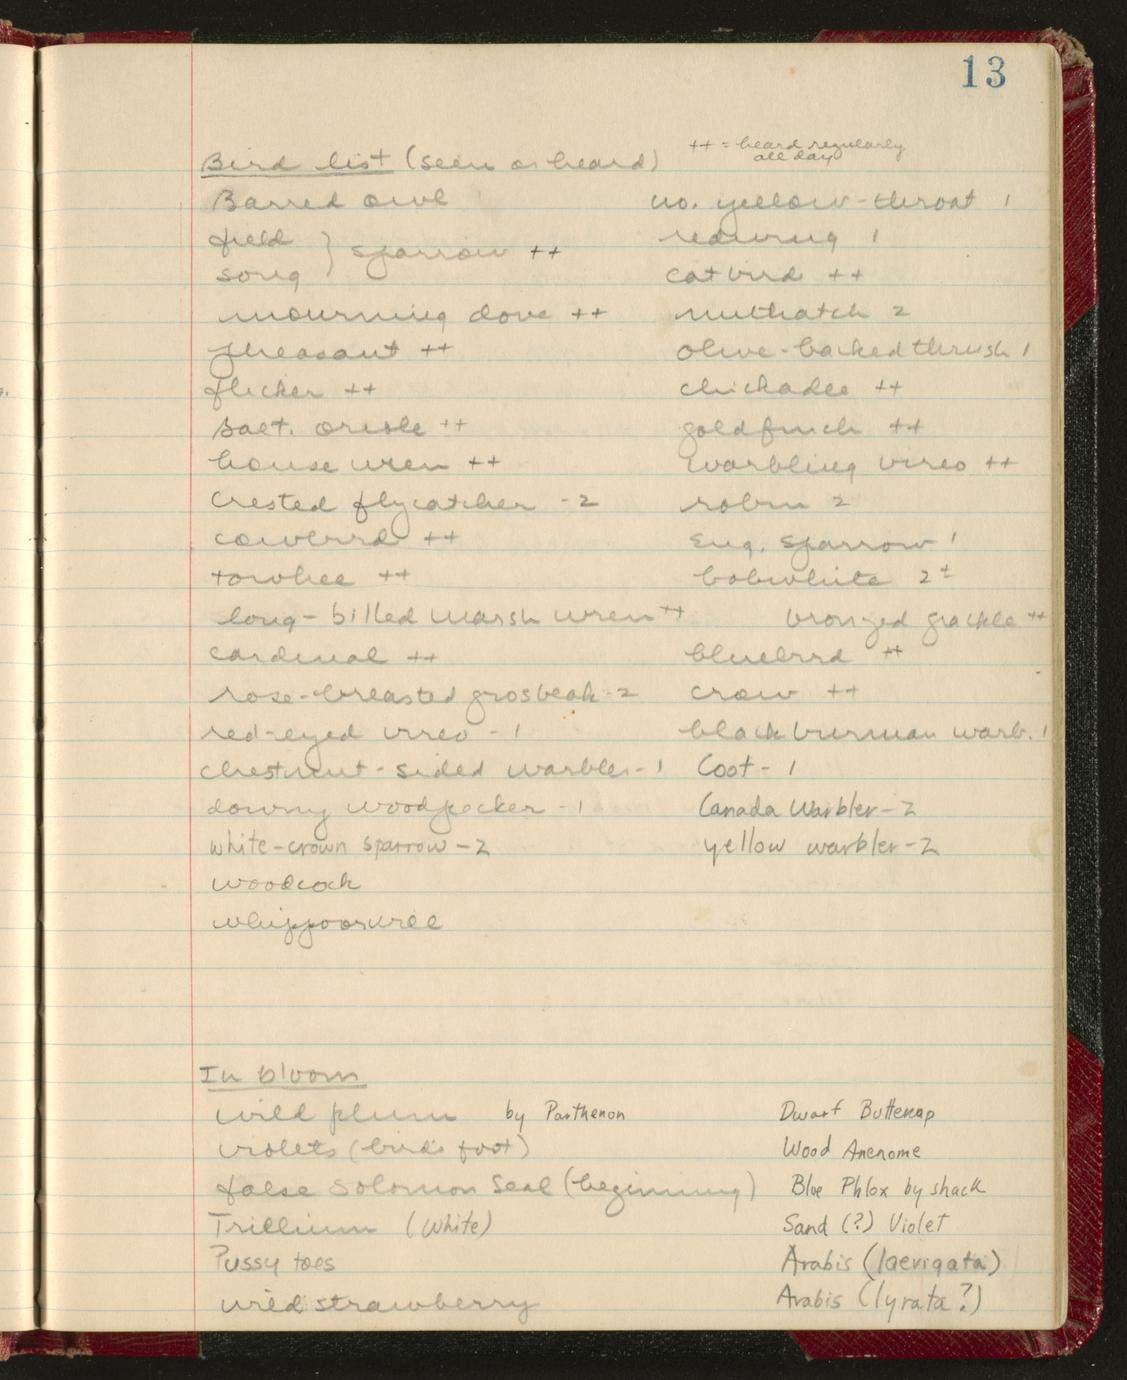 13
Bird list (seen or heard)
++ = heard regularly
all day
Barred owl
field
song } sparrow ++
mourning dove ++
pheasant ++
flicker ++
Balt. oriole ++
house wren ++
Crested flycatcher - 2
cowbird ++
towhee ++
long-billed marsh wren ++
cardinal ++
rose-breasted grosbeak - 2
red-eyed vireo - 1
chestnut-sided warbler - 1
downy woodpecker - 1
white-crown sparrow - 2
woodcock
whippoorwill
no. yellow-throat 1
redwing 1
catbird ++
nuthatch 2
olive-backed thrush 1
chickadee ++
goldfinch ++
warbling vireo ++
robin 2
Eng. sparrow 1
bobwhite 2±
bronzed grackle ++
bluebird ++
crow ++
blackburnian warb. 1
Coot - 1
Canada Warbler - 2
yellow warbler - 2
In bloom
wild plum by Parthenon
violets (bird's foot)
false Solomon Seal (beginning)
Trillium (White)
Pussy toes
wild strawberry
Dwarf Buttercup
Wood Anenome
Blue Phlox by shack
Sand (?) Violet
Arabis (laevigata)
Arabis (lyrata?)